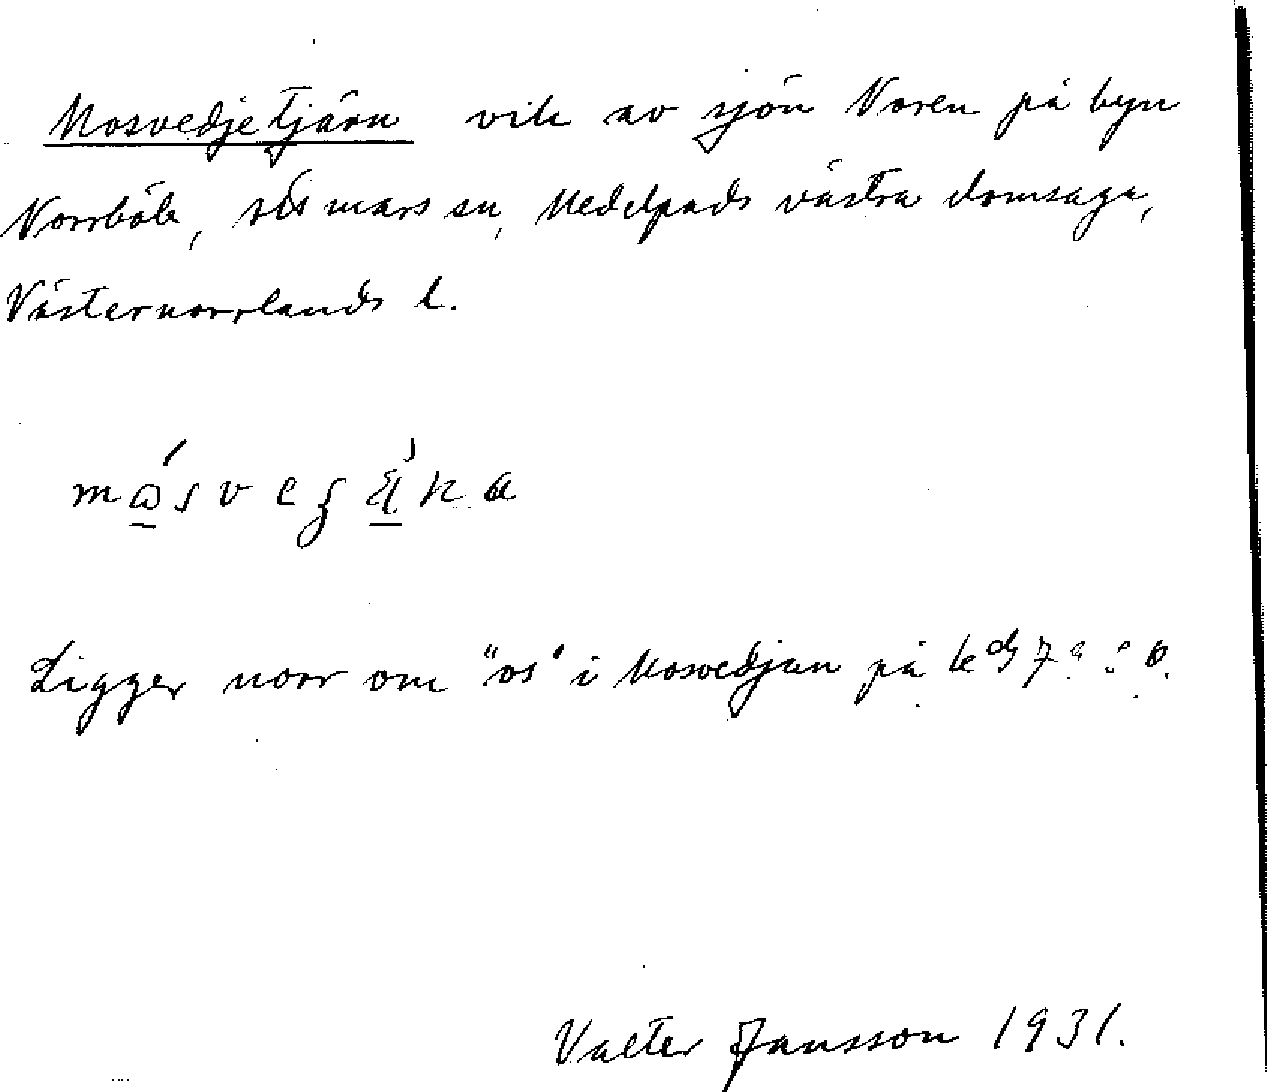 Mosvedjetjärn vik av sjön Noren på byn
Norrböle, Stömars sn, Medelpads västra domsaga,
Västernorrlands l.
Ligger norr om "os" i Mosvedjan på
Valter Jansson 1931.